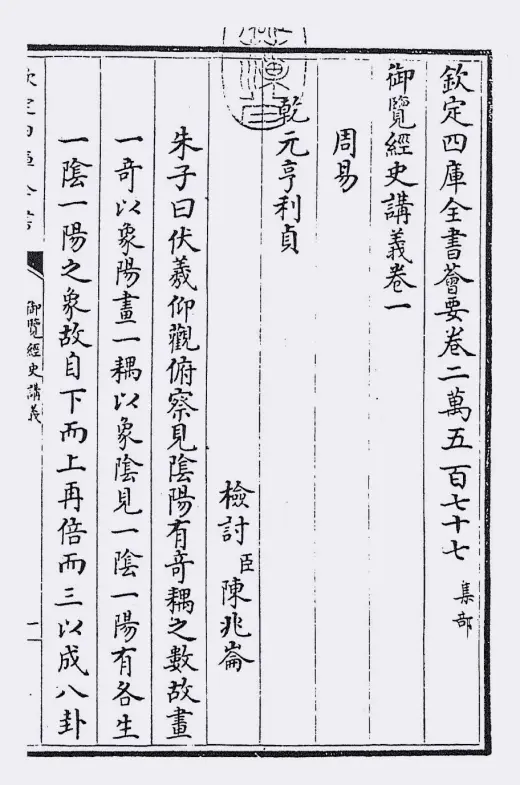 欽定四庫全書薈要卷二萬五百七十七 集部
御覽經史講義卷一
周易
乾元亨利貞
檢討臣陳兆崙
朱子曰伏羲仰觀俯察見陰陽有竒耦之數故畫
一竒以象陽畫一耦以象陰見一陰一陽有各生
一陰一陽之象故自下而上再倍而三以成八卦
御覽經史講義
一